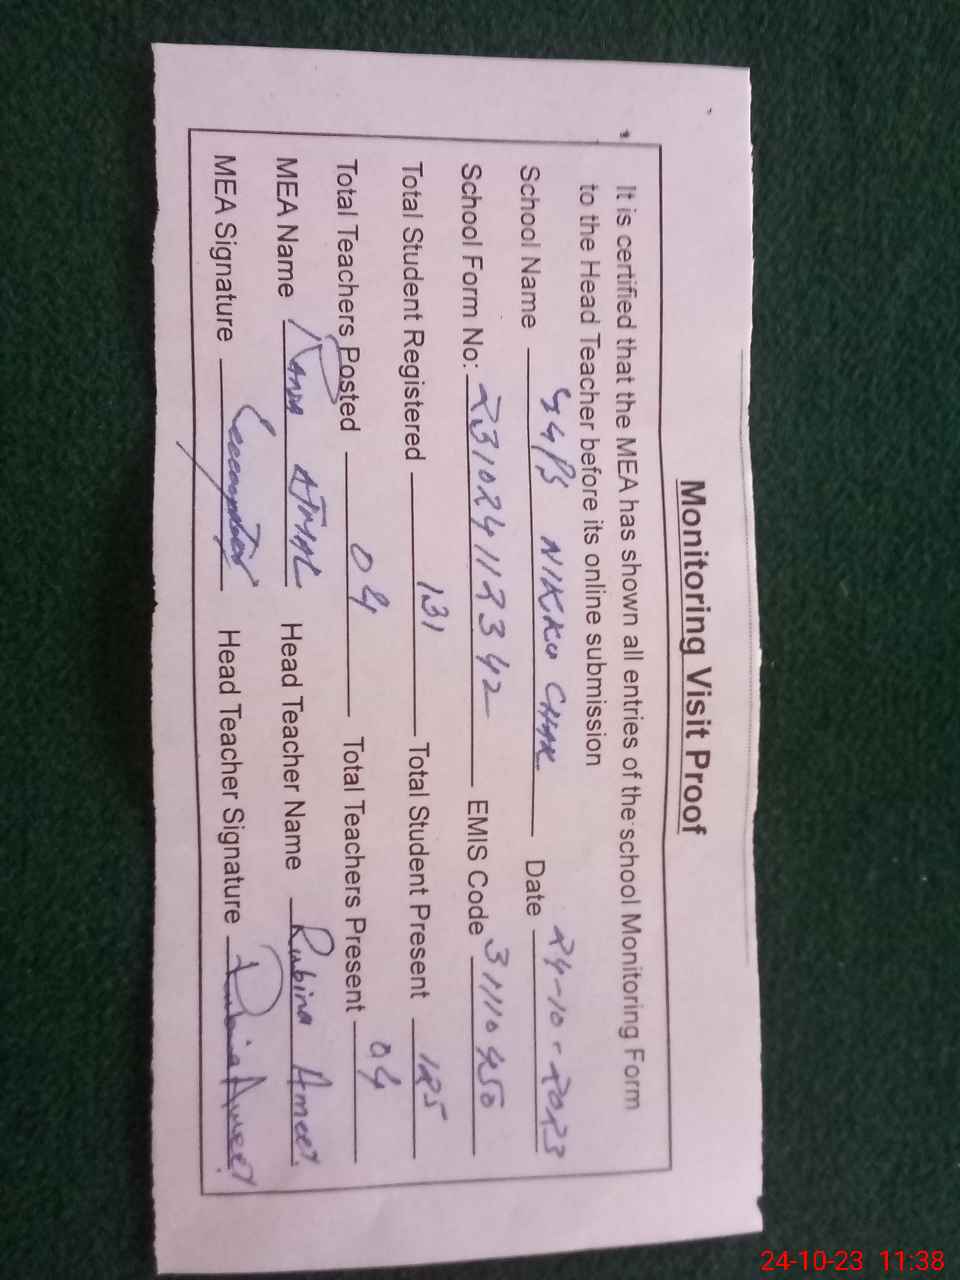 Monitoring Visit Proof
It is certified that the MEA has shown all entries of the school Monitoring Form
to the Head Teacher before its online submission
School Name GGPS NIKKU CHAK Date 24-10-2023
School Form No: 231024112342 EMIS Code 31110450
Total Student Registered 131 Total Student Present 125
Total Teachers Posted 04 Total Teachers Present 04
MEA Name RANA AJMAL Head Teacher Name Rubina Ameer
MEA Signature Head Teacher Signature Rubina Ameer
24-10-23 11:38